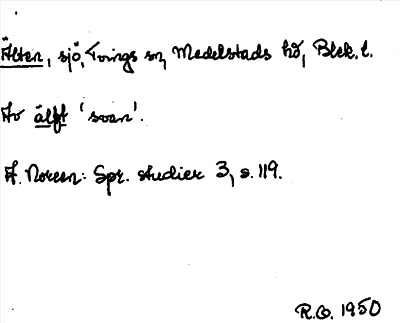 Älten, sjö, Tvings sn, Medelstads hd, Blek. l.
Av älft 'svan'.
A. Noreen: Spr. studier 3, s. 119.
R.O. 1950